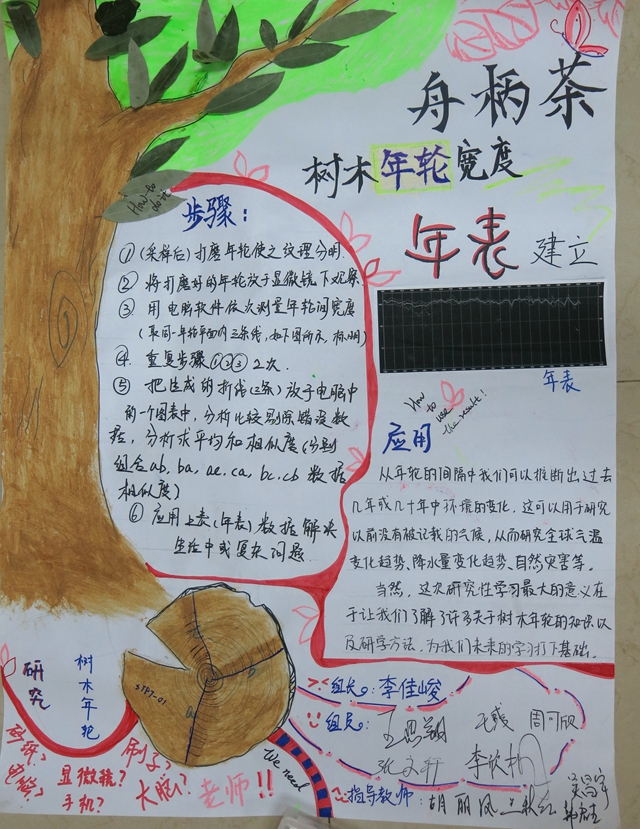 舟柄茶
树木年轮宽度
年表 建立
How to do it
步骤:
①(采样后)打磨年轮使之纹理分明.
②将打磨好的年轮放于显微镜下观察.
③用电脑软件依次测量年轮间宽度
(取同一年轮平面内三条线,如下图所示,标明)
④.重复步骤①②③2次.
⑤把生成的折线(三条)放于电脑中
的一个图表中,分析比较剔除错误数
据,分析求平均和相似度(分别
组合ab,ba,ac,ca,bc,cb数据
相似度)
⑥应用上表(年表)数据解决
生活中或复杂问题
年表
How to use the result!
应用
从年轮的间隔中我们可以推断出过去
几年或几十年中环境的变化。这可以用于研究
以前没有被记载的气候,从而研究全球气温
变化趋势、降水量变化趋势、自然灾害等。
当然,这次研究性学习最大的意义在
于让我们了解了许多关于树木年轮的知识以
及研学方法,为我们未来的学习打下基础。
研究
树木年轮
STPT-01
a
b
电脑?
显微镜?
手机?
刷子?
大脑?
老师!!
We need
组长:李佳峻
组员:
王思翔
周可欣
李欣桐
指导教师:胡丽凤